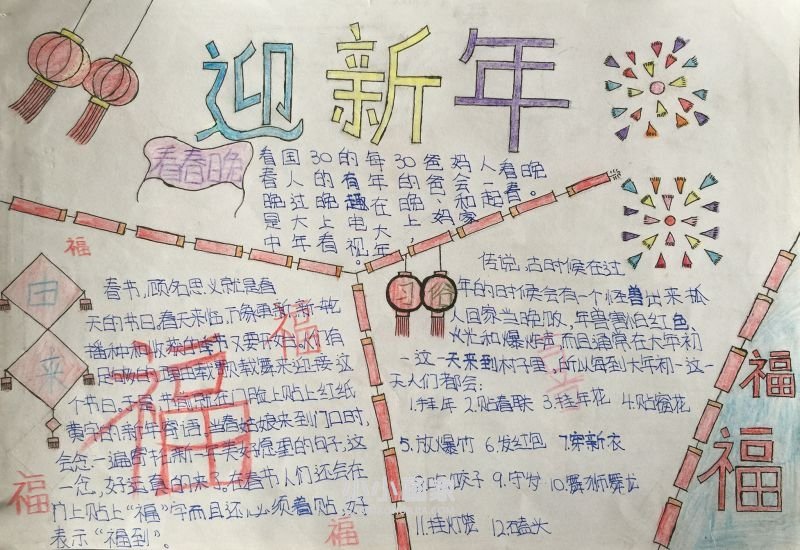 迎新年
看春晚
看春晚是中
国人过大年
30的晚上看
的有趣电视。
每年在大年
30的晚上,
爸爸、妈
好会和家
人一起
看春
晚。
福
由来
春书,顾名思义就是春
天的节日,春天来临,万象更新,新一轮
播种和收获的季节又要开始。人们有
足够的理由载歌载舞来迎接这
个节日。于是,节前就在门脸上贴上红纸
黄字的新年寄语,当春姑娘来到门口时,
会念一遍寄托新一年美好愿望的句子,这
一念,好运真的来了。在春节人们还会在
门上贴上“福”字而且还必须着贴,好
表示“福到”。
福
福
福
福
习俗
传说,古时候在过
年的时候会有一个怪兽出来抢
人回家当晚饭,年兽害怕红色、
火光和爆炸声而且通常在大年初
一这一天来到村子里,所以每到大年初一这一
天人们都会:
1.拜年 2.贴春联 3.挂年花 4.贴窗花
5.放爆竹 6.发红包 7.穿新衣
8.吃饺子 9.守岁 10.舞狮舞龙
11.挂灯笼 12.磕头
福
福